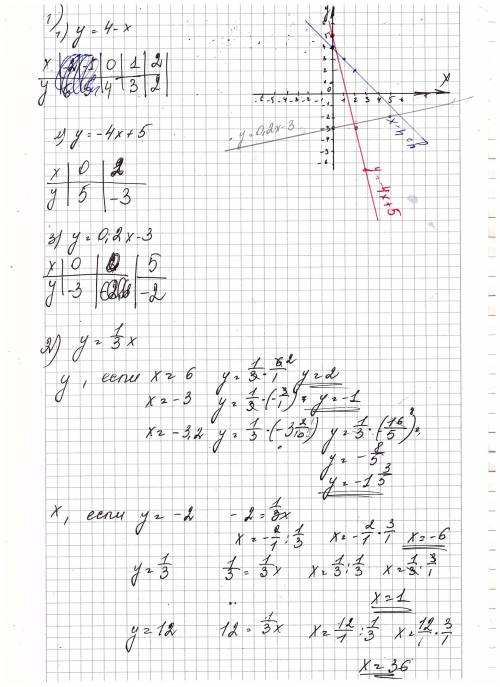 1)
1) y = 4 - x
x | 0 | 1 | 2
y | 4 | 3 | 2
2) y = -4x + 5
x | 0 | 2
y | 5 | -3
3) y = 0,2x - 3
x | 0 | 5
y | -3 | -2
y
x
y = 0,2x - 3
y = 4 - x
y = -4x + 5
2) y = 1/3 x
y, если x = 6 y = 1/3 · 6/1 2 y = 2
x = -3 y = 1/3 · (-3/1) = y = -1
x = -3,2 y = 1/3 · (-3 2/10) y = 1/3 · (-16/5) =
y = -8/5
y = -1 3/5
x, если y = -2 -2 = 1/3 x
x = -2/1 : 1/3 x = -2/1 · 3/1 x = -6
y = 1/3 1/3 = 1/3 x x = 1/3 : 1/3 x = 1/3 · 3/1
x = 1
y = 12 12 = 1/3 x x = 12/1 : 1/3 x = 12/1 · 3/1
x = 36